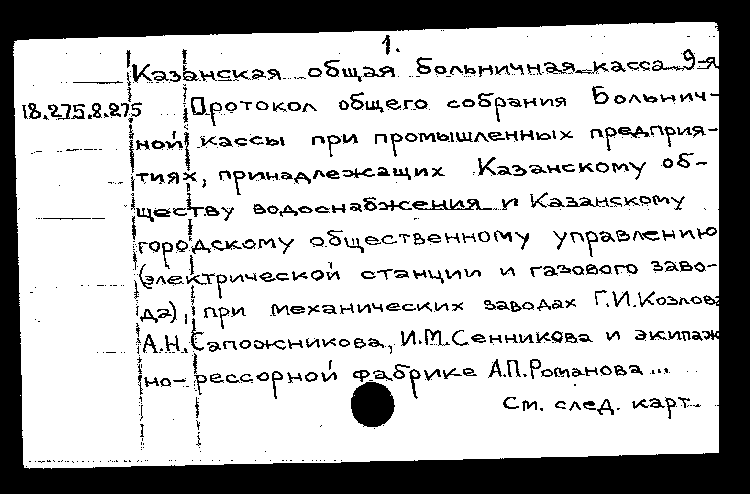 1.
Казанская общая больничная касса 9-я
18.275.8.275 Протокол общего собрания Больнич-
ной кассы при промышленных предприя-
тиях, принадлежащих Казанскому об-
ществу водоснабжения и Казанскому
городскому общественному управлению
(электрической станции и газового заво-
да), при механических заводах Г.И.Козлова
А.Н.Сапожникова, И.М.Сенникова и экипаж
но-рессорной фабрике А.П.Романова...
См. след. карт.